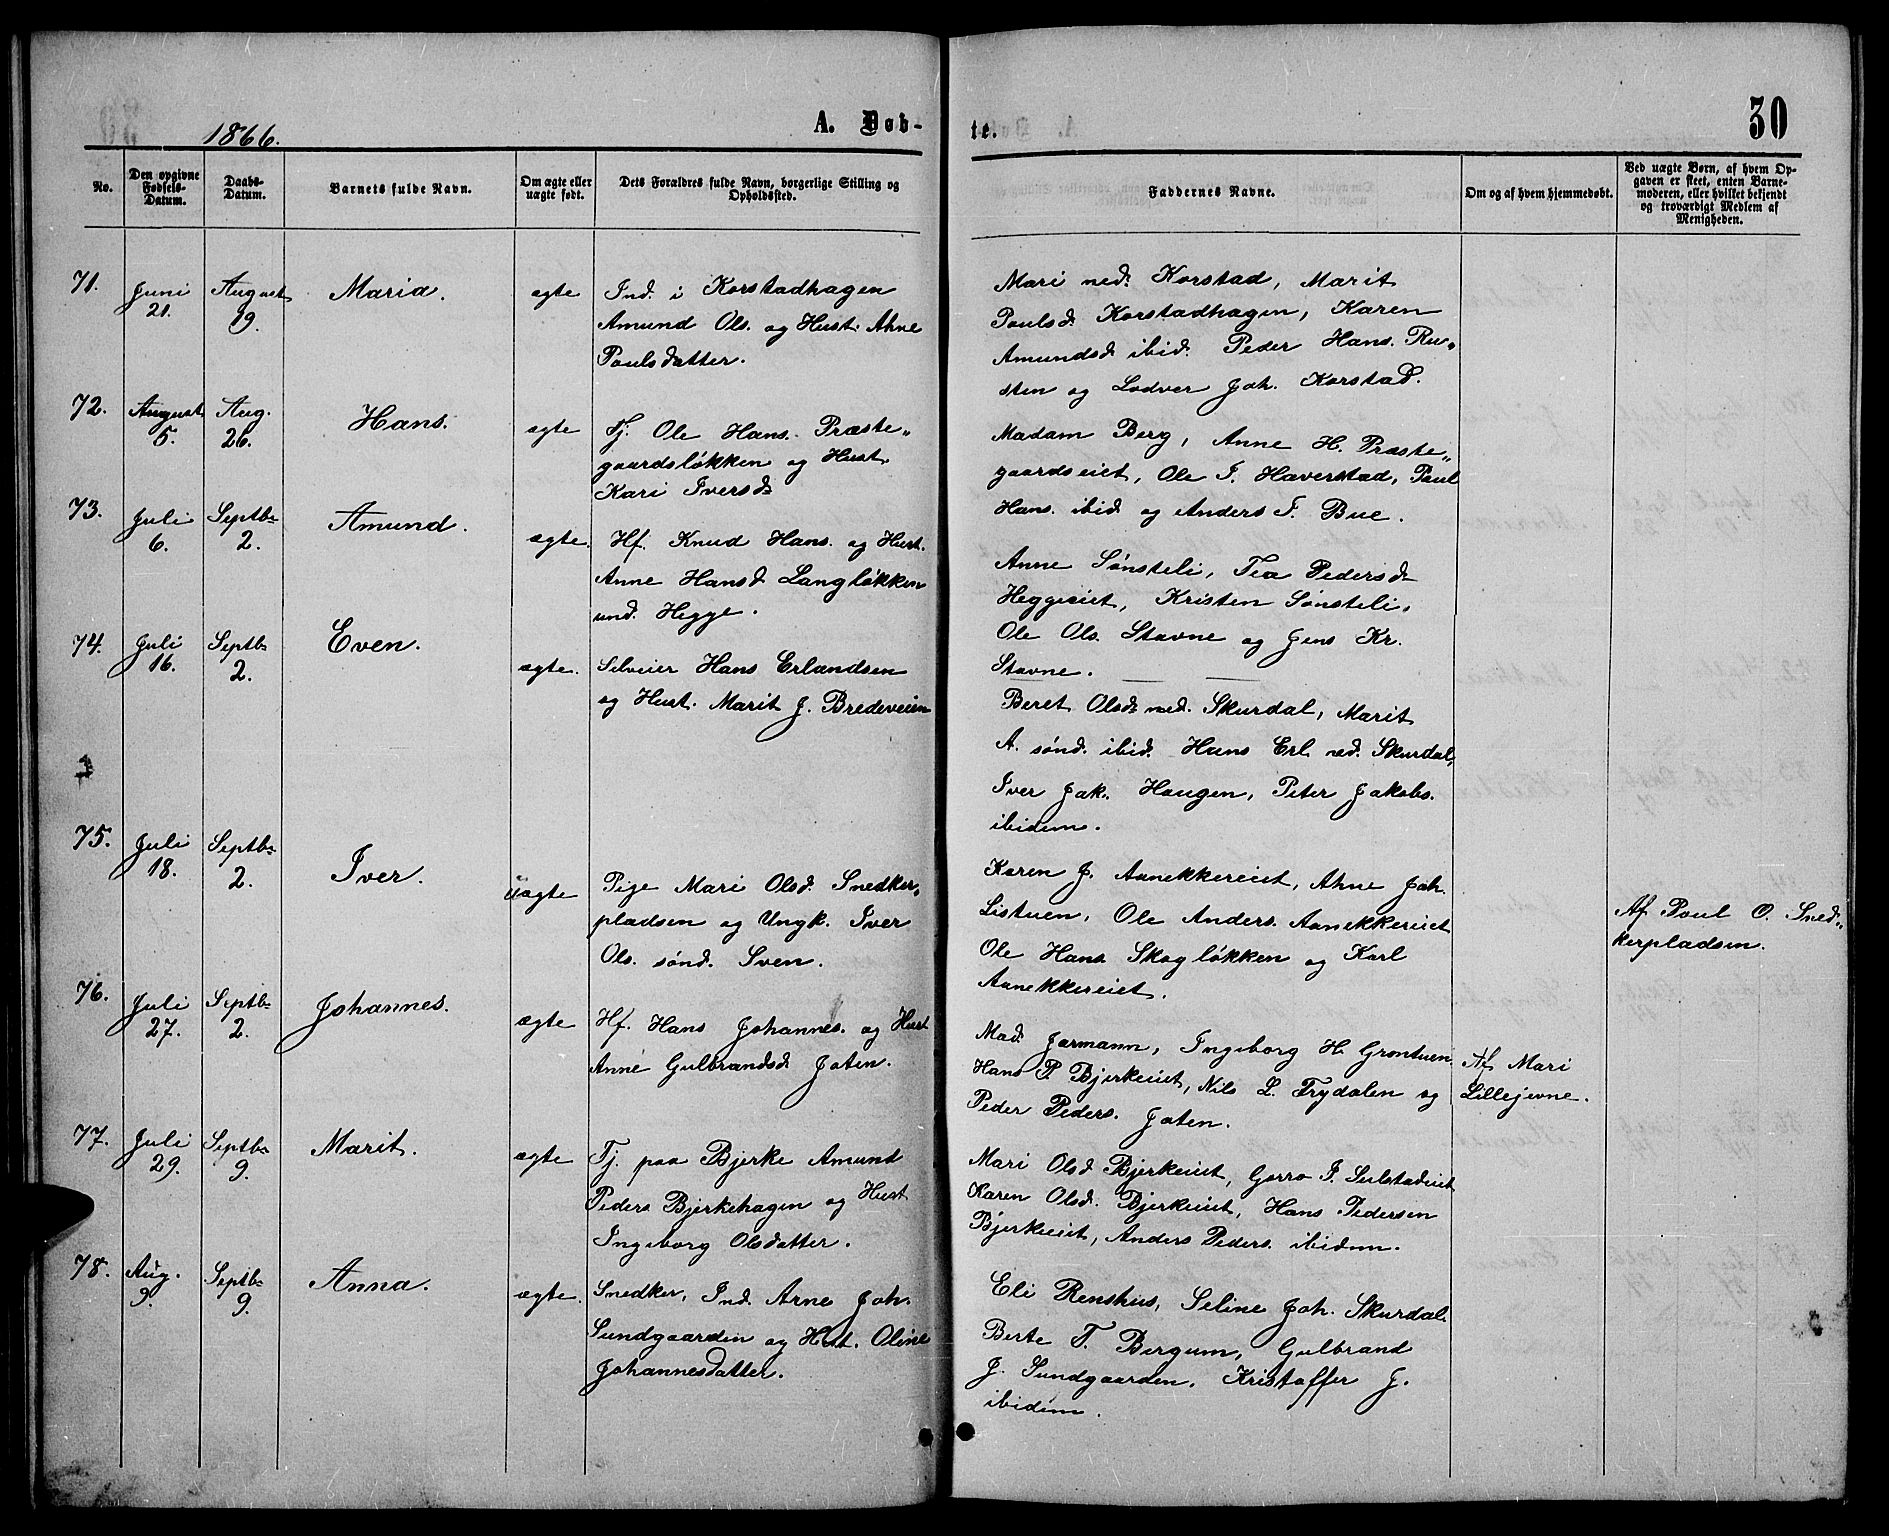 1866.
A. Døb-
te.
30
No.
Den opgivne Fødsels-Datum.
Daabs-Datum.
Barnets fulde Navn.
Om ægte eller uægte født.
Dets Forældres fulde Navn, borgerlige Stilling og Opholdssted.
Faddernes Navne.
Om og af hvem hjemmedøbt.
Ved uægte Børn, af hvem Op-
gaven er skeet, enten Barne-
moderen, eller hvilket bekjendt
og troværdigt Medlem af
Menigheden.
71. Juni 21. August 19. Maria. ægte
Ind. i Korstadhagen
Amund Ols. og Hust. Ahne
Poulsdatter.
Mari ned. Korstad, Marit
Poulsd. Korstadhagen, Karen
Amundsd. ibid. Peder Hans. Ru„
sten og Lodver Joh. Korstad.
72. August 5. Aug. 26. Hans. ægte
Tj. Ole Hans. Præste„
gaardsløkken og Hust.
Kari Iversd.
Madam Berg, Anne H. Præste„
gaardseiet, Ole I. Haverstad, Paul
Hans. ibid. og Anders T. Bue.
73. Juli 6. Septbr. 2. Amund. ægte.
Hf. Knud Hans. og Hust.
Anne Hansd. Langløkken
und. Hegge.
Anne Sønsteli, Tea Pedersd.
Heggeeiet, Kristen Sønsteli,
Ole Ols. Stavne og Jens Kr.
Stavne.
74. Juli 16. Septbr. 2. Even. ægte.
Selveier Hans Erlandsen
og Hust. Marit J. Bredeveien
Beret Olsd. ned. Skurdal, Marit
A. sønd. ibid. Hans Erl. ned. Skurdal,
Iver Jak. Haugen, Peter Jakobs.
ibidem.
75. Juli 18. Septbr. 2. Iver. uægte
Pige Mari Olsd. Snedker„
pladsen og Ungk. Iver
Ols. sønd. Sven.
Karen J. Aanekkereiet, Ahne Joh.
Listuen, Ole Anders. Aanekkereiet
Ole Hans. Skogløkken og Karl
Aanekkereiet.
Af Poul O. Sned„
kerpladsen.
76. Juli 27. Septbr. 2. Johannes. ægte
Hf. Hans Johannes. og Hust.
Anne Gulbrandsd. Joten.
Mad. Jormann, Ingeborg H. Grøntuen
Hans P. Bjerkeeiet, Nils L. Frydalen og
Peder Peders. Joten.
Af Mari
Lillejevne.
77. Juli 29. Septbr. 9. Marit. ægte
Tj. paa Bjerke Amund
Peders Bjerkehagen og Hust.
Ingeborg Olsdatter.
Mari Olsd. Bjerkeeiet, Gorro P. Selstadeiet
Karen Olsd. Bjerkeeiet, Hans Pedersen
Bjerkeeiet, Anders Peders. ibidem.
78. Aug. 9. Septbr. 9. Anna. ægte.
Snedker, Ind. Arne Joh.
Sundgaarden og Hust. Oline
Johannesdatter.
Eli Renshus, Seline Joh. Skurdal.
Berte T. Bergum, Gulbrand
J. Sundgaarden, Kristoffer J.
ibidem.